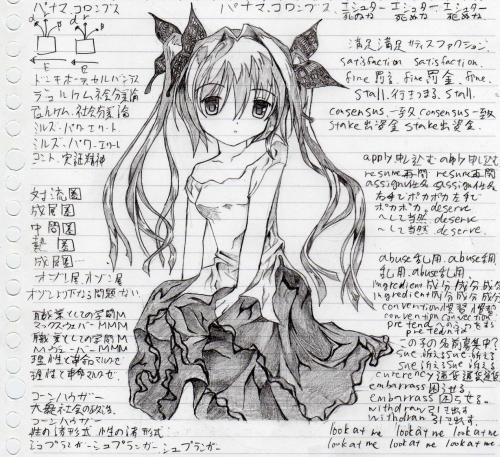 パナマ.コロンブス
ドンキホーテ.セルバンテス
デュルケム.社会分業論
デュルケム.社会分業論
ミルズ.パワーエリート
ミルズ.パワーエリート
コント.実証精神
対流圏
成層圏
中間圏
熱圏
成層圏
オゾン層.オゾン層
職業としての学問M
マックスウェーバーMMM
職業としての学問M
Mウェーバー MMM
理性と革命マルクーゼ
理性と革命マルクーゼ
コーンハウザー
大衆社会の政治
コーンハウザー
シュプランガー シュプランガー シュプランガー
パナマ.コロンブス
死ぬぬ 死ぬぬ 死ぬぬ
満足満足サティスファクション.
satisfaction satisfaction.
fine 罰金. fine 罰金 fine.
Stall.行きづまる. Stall.
consensus.一致 consensus 一致
stake 出資金 stake 出資金.
apply 申し込む の申し込む
resume 再開 resume 再開
assign 任命 assign 任命
ポカポカ. deserve
〜して当然 deserve
〜して当然. deserve.
abuse 乱用. abuse 乱用
乱用. abuse 乱用.
ingredient 成分 成分 成分
ingredient 成分 成分 成分
convention 慣習 慣習
convention convention
pretend
pretend
この子の名前募集中?
sue 訴える sue 訴える
sue 訴える sue 訴える
currency 通貨 通貨 通貨
embarrass 困らせる
embarrass 困らせる.
withdraw 引き出す
withdraw 引き出す.
look at me look at me look at me
look at me look at me look at me